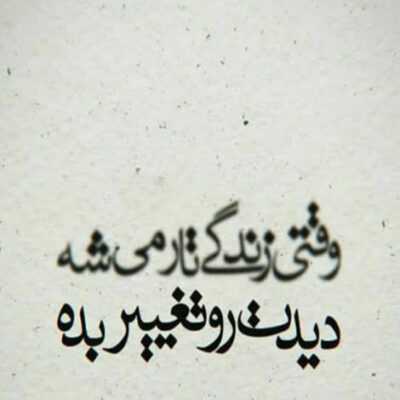 وقتی زندگے تار می شه
دیدت رو تغییر بده